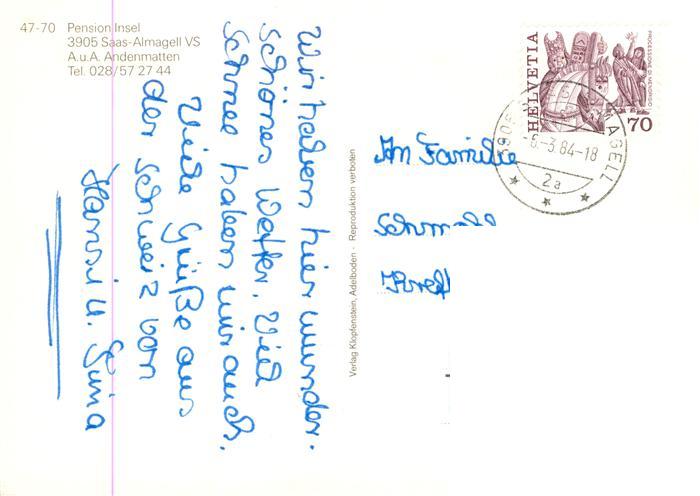 47-70 Pension Insel
3905 Saas-Almagell VS
A.u.A. Andenmatten
Tel. 028/57 27 44
Wir haben hier wunder-
schönes Wetter. Viel
schnee haben wir auch.
Viele Grüße aus
der schweiz von
Hansi u.
Verlag Klopfenstein, Adelboden - Reproduktion verboten
HELVETIA
PROCESSIONE DI MENDRISIO
70
6.-3.84-18
2a
An Familie